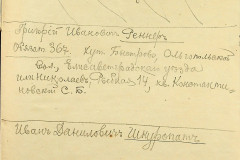 Григорій Ивановичъ Реннеръ
Обязат. 367. хут. Быстрово, Ольгопольской
вол., Елисаветградскаго уѣзда
или Николаевъ, Рыбная 14, кв. Константи-
новской С. Б.
Иванъ Даниловичъ Шкуропатъ